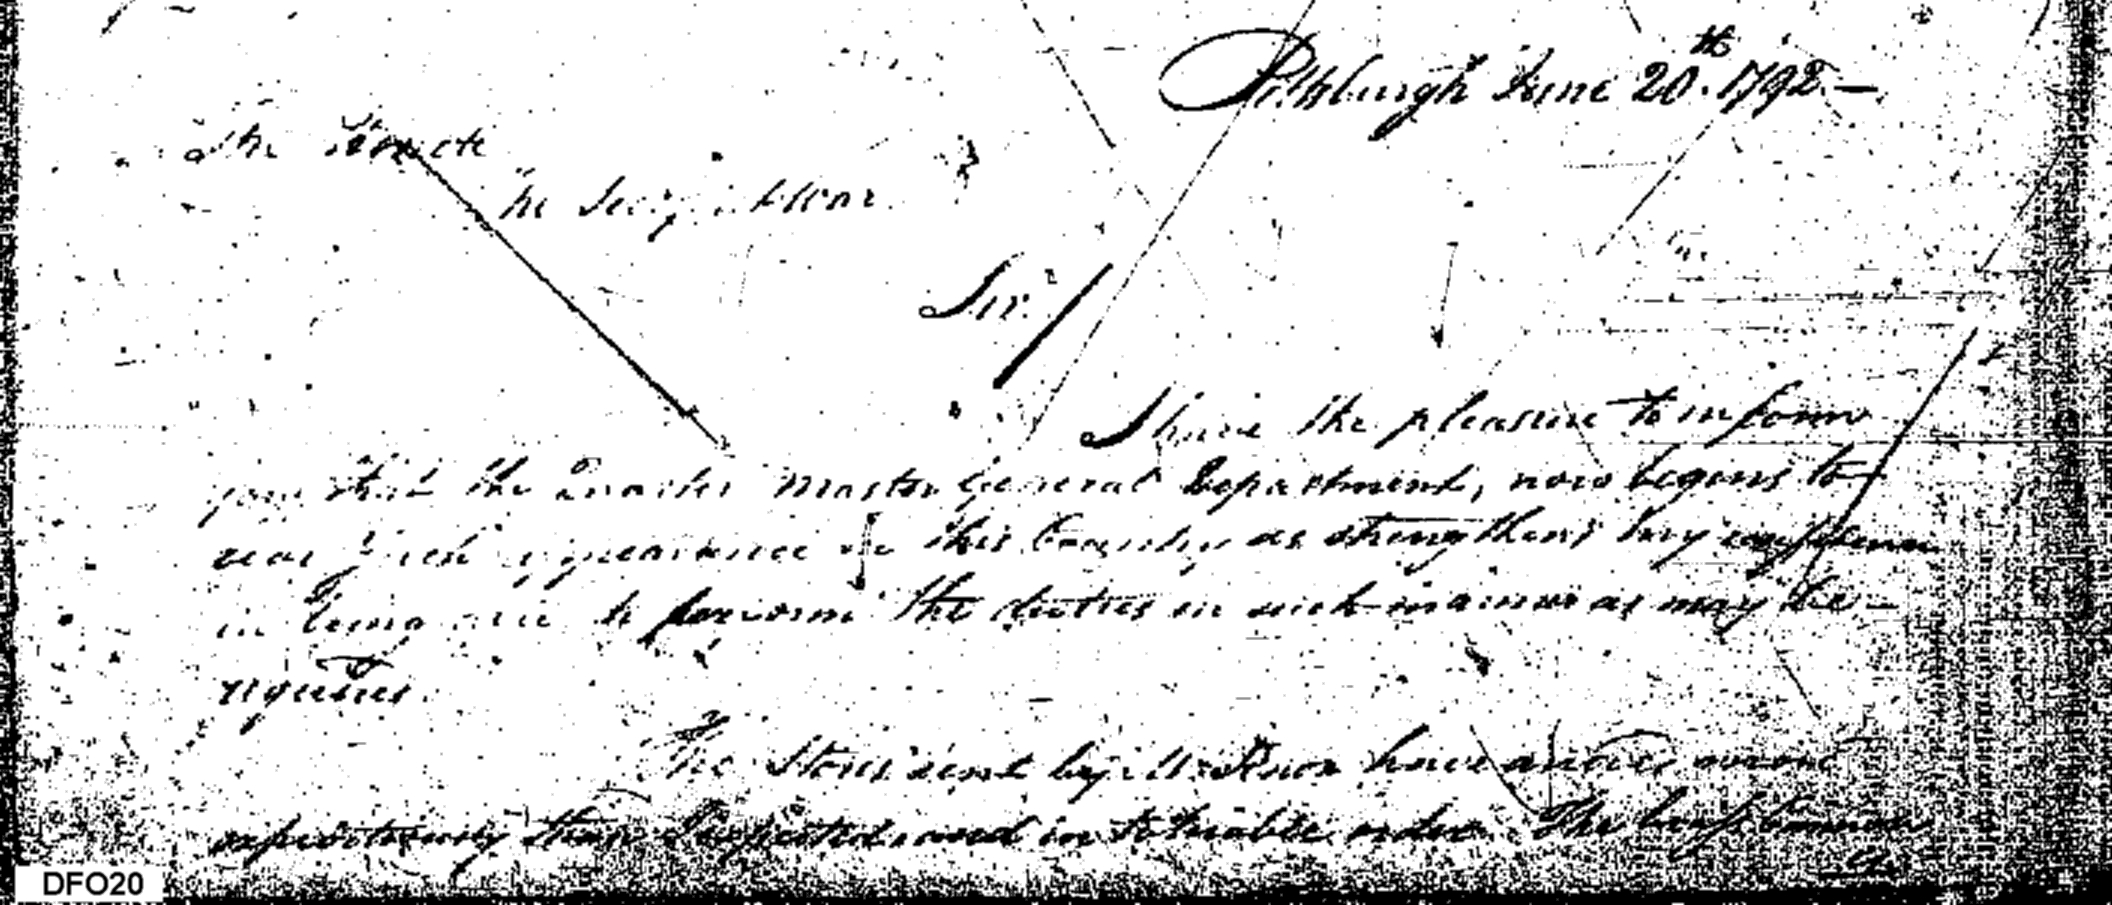 Pittsburgh June 20th. 1792.—
The Honble
The Secy of War
Sir
I have the pleasure to inform
you that the Quarter Master General Department, now begins to
wear such appearance in this Country as strengthens my confidence
in being able to perform the duties in such manner as may be
required.
The Stores sent by Mr Knox have arrived more
expeditiously than I expected, and in tolerable order. The
DFO20